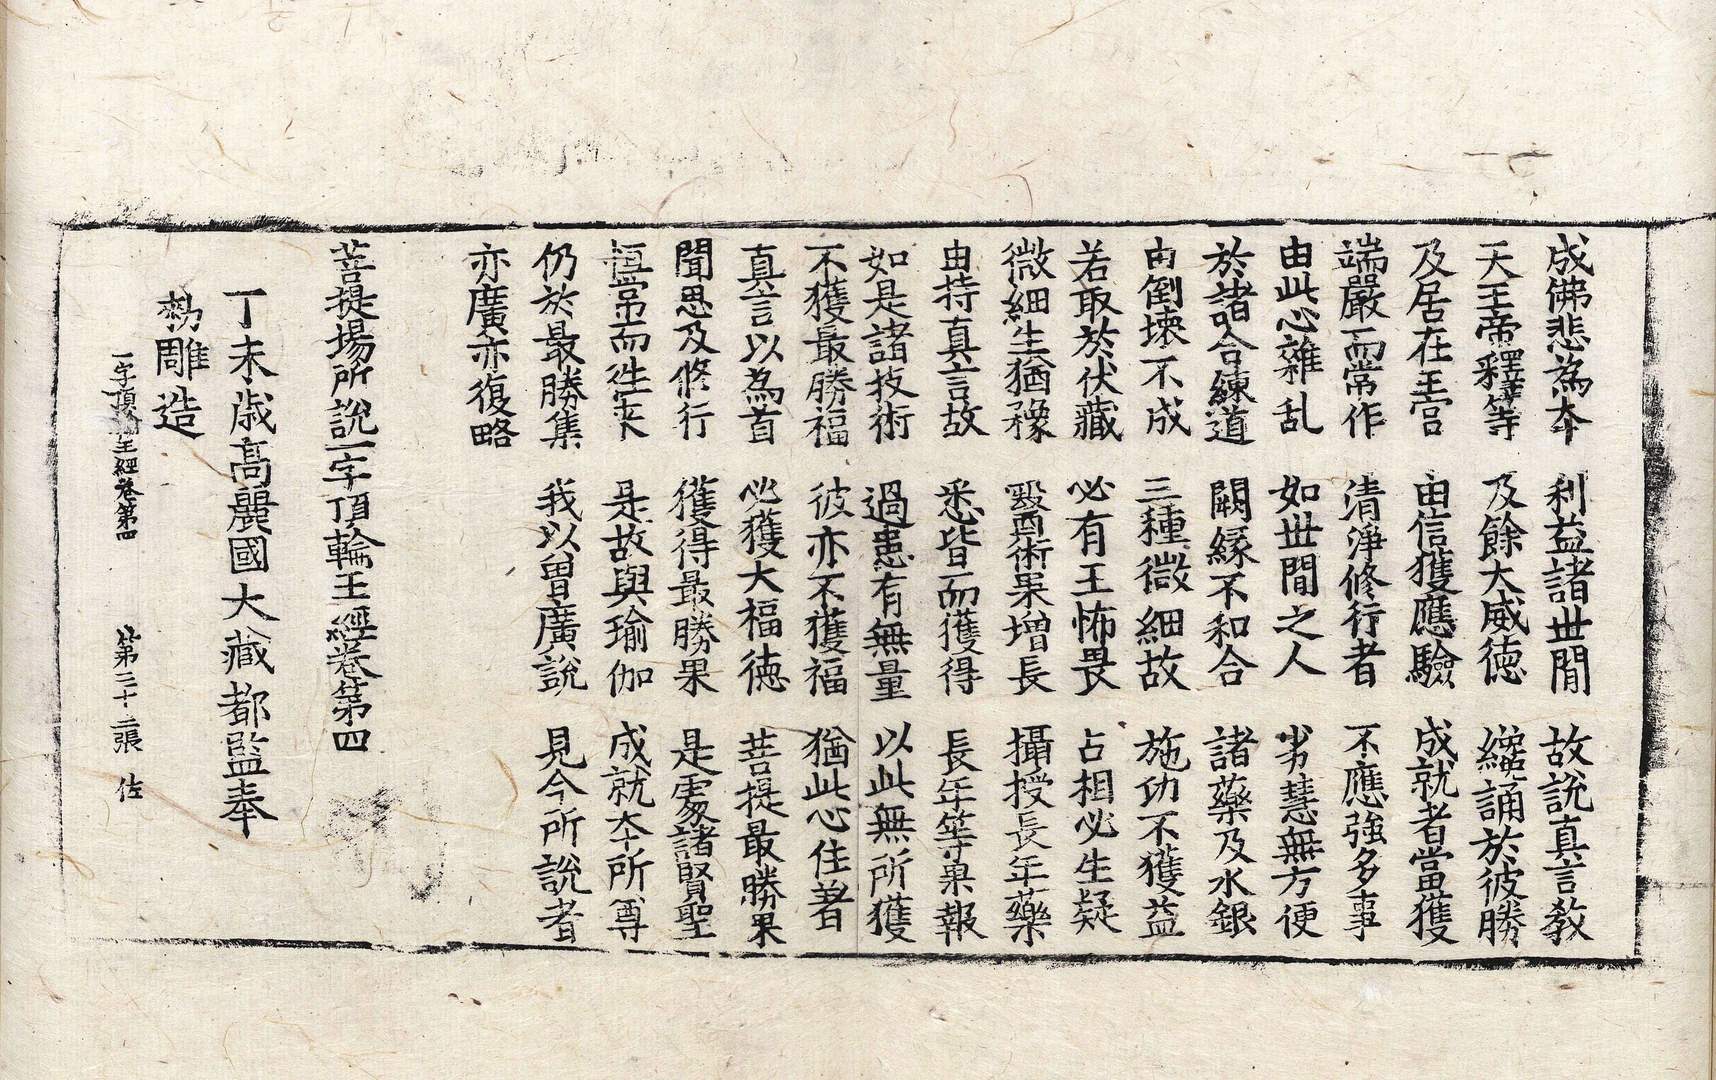 成佛悲為本 利益諸世間 故說真言教
天王帝釋等 及餘大威德 纔誦於彼勝
及居在王宮 由信獲應驗 成就者當獲
端嚴而常作 清淨修行者 不應強多事
由此心雜乱 如世間之人 劣慧無方便
於諸合練道 闕緣不和合 諸藥及水銀
由倒壞不成 三種微細故 施功不獲益
若取於伏藏 必有王怖畏 占相必生疑
微細生猶豫 毉術果增長 攝授長年藥
由持真言故 悉皆而獲得 長年等果報
如是諸技術 過患有無量 以此無所獲
不獲最勝福 彼亦不獲福 猶此心住著
真言以為首 必獲大福德 菩提最勝果
聞思及修行 獲得最勝果 是處諸賢聖
恒常而往来 是故與瑜伽 成就本所尊
仍於最勝集 我以曾廣說 見今所說者
亦廣亦復略
菩提場所說一字頂輪王經卷第四
丁未歲高麗國大藏都監奉
勑雕造
一字頂輪王經卷第四 第三十二張 佐